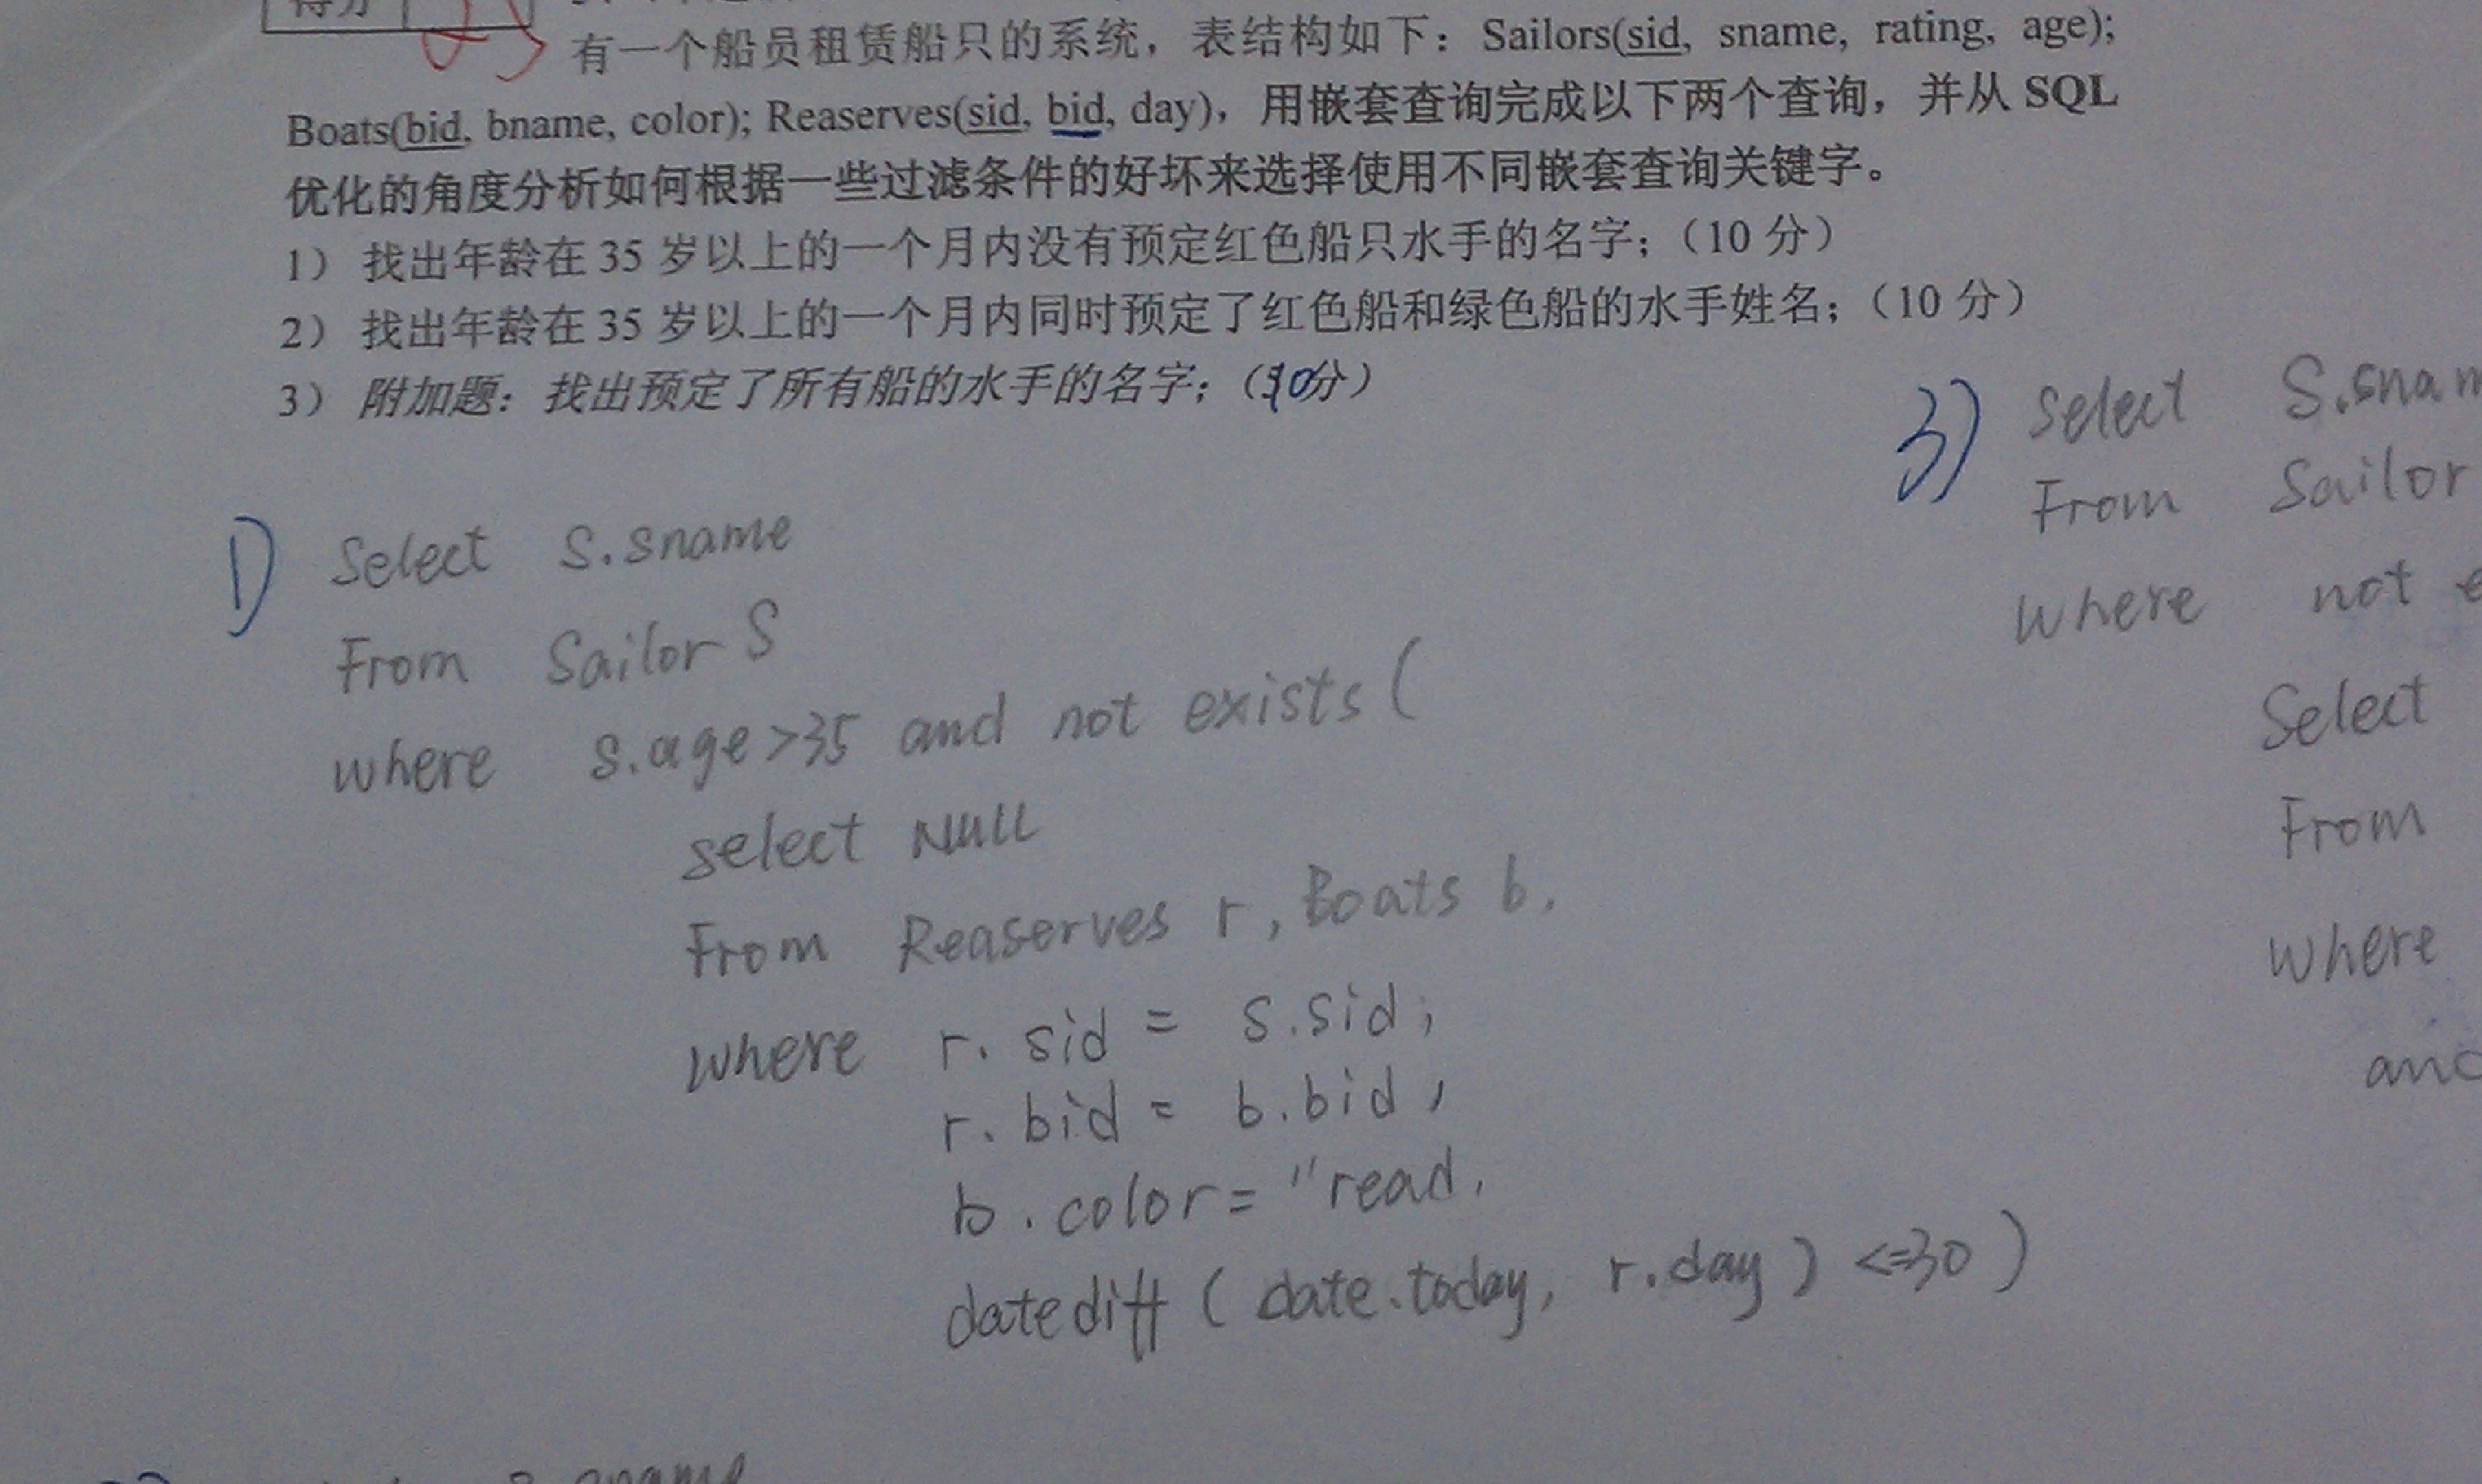 得分
有一个船员租赁船只的系统，表结构如下：Sailors(sid, sname, rating, age);
Boats(bid, bname, color); Reaserves(sid, bid, day)，用嵌套查询完成以下两个查询，并从 SQL
优化的角度分析如何根据一些过滤条件的好坏来选择使用不同嵌套查询关键字。
1） 找出年龄在 35 岁以上的一个月内没有预定红色船只水手的名字；（10 分）
2） 找出年龄在 35 岁以上的一个月内同时预定了红色船和绿色船的水手姓名；（10 分）
3） 附加题：找出预定了所有船的水手的名字；（10分）
1) Select S.sname
From Sailor S
where S.age>35 and not exists (
select Null
From Reaserves r, Boats b,
where r.sid = s.sid,
r.bid = b.bid,
b.color = "read,
datediff ( date.today, r.day ) <=30 )
3) Select S.snam
From Sailor
where not e
Select
From
where
and
sname